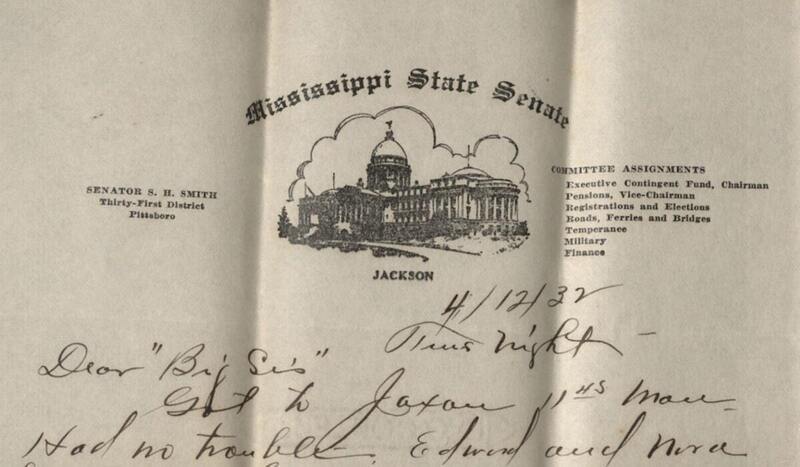 Mississippi State Senate
SENATOR S. H. SMITH
Thirty-First District
Pittsboro
COMMITTEE ASSIGNMENTS
Executive Contingent Fund, Chairman
Pensions, Vice-Chairman
Registrations and Elections
Roads, Ferries and Bridges
Temperance
Military
Finance
JACKSON
4/12/32
Tues Night -
Dear "Big Sis"
Got to Jaxon 11 45 Mon-
Had no trouble. Edward and Nora